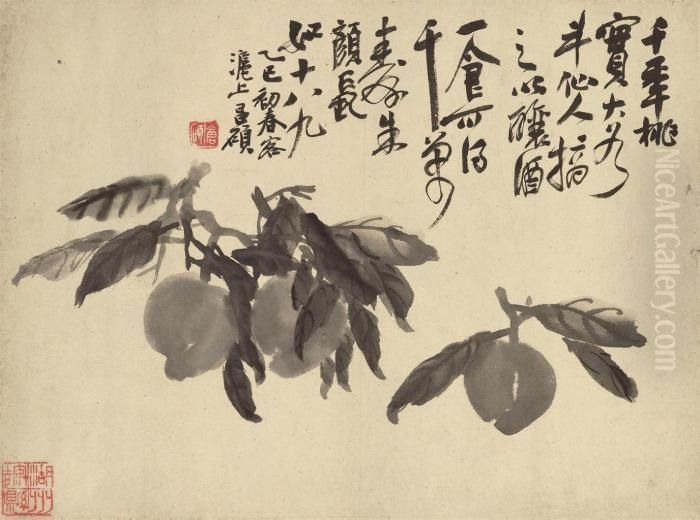 千年桃
實大若
斗仙人摘
之以釀酒
一食可得
千萬
壽朱
顏長
如十八九
乙巳初春客
滬上昌碩
倉碩
NiceArtGallery.com